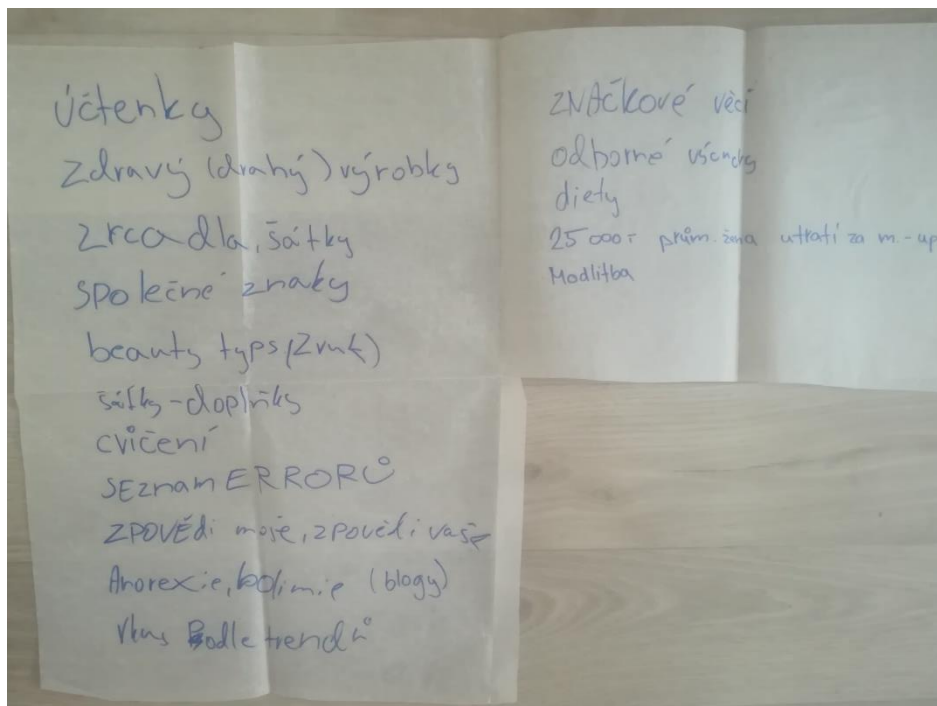 účtenky
zdravý (drahý) výrobky
zrcadla, šátky
společné znaky
beauty typs (zvuk)
šátky - doplňky
cvičení
SEznam ERRORů
ZPOVĚDi moje, zpovědi vaše
Anorexie, bolimie (blogy)
vkus Podle trendů
ZNAčkové věci
odborné
diety
25 000,- prům. žena utratí za m.-up
Modlitba